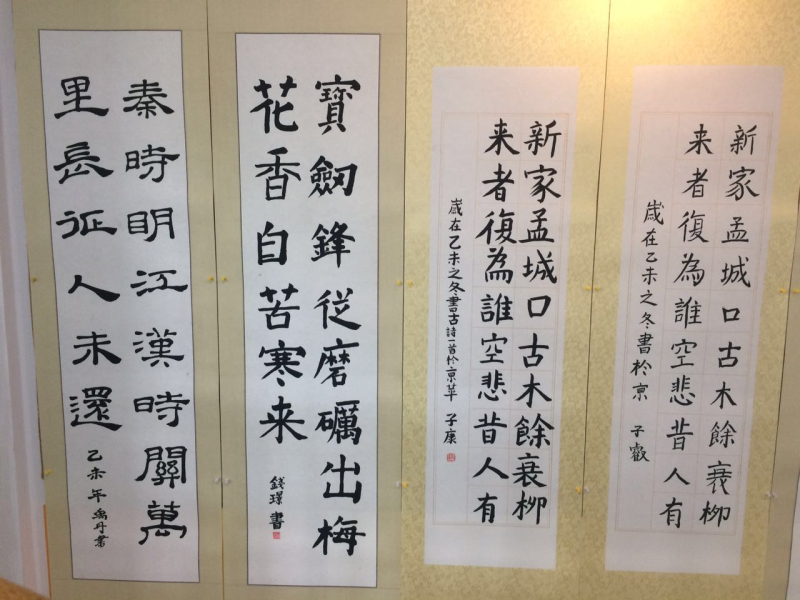 秦時明江漢時關萬
里長征人未還
乙未年
寶劒鋒從磨礪出梅
花香自苦寒来
錢璟書
新家孟城口古木餘衰柳
来者復為誰空悲昔人有
歲在乙未之冬書古詩一首於京華 子康
新家孟城口古木餘衰柳
来者復為誰空悲昔人有
歲在乙未之冬書於京 子叡